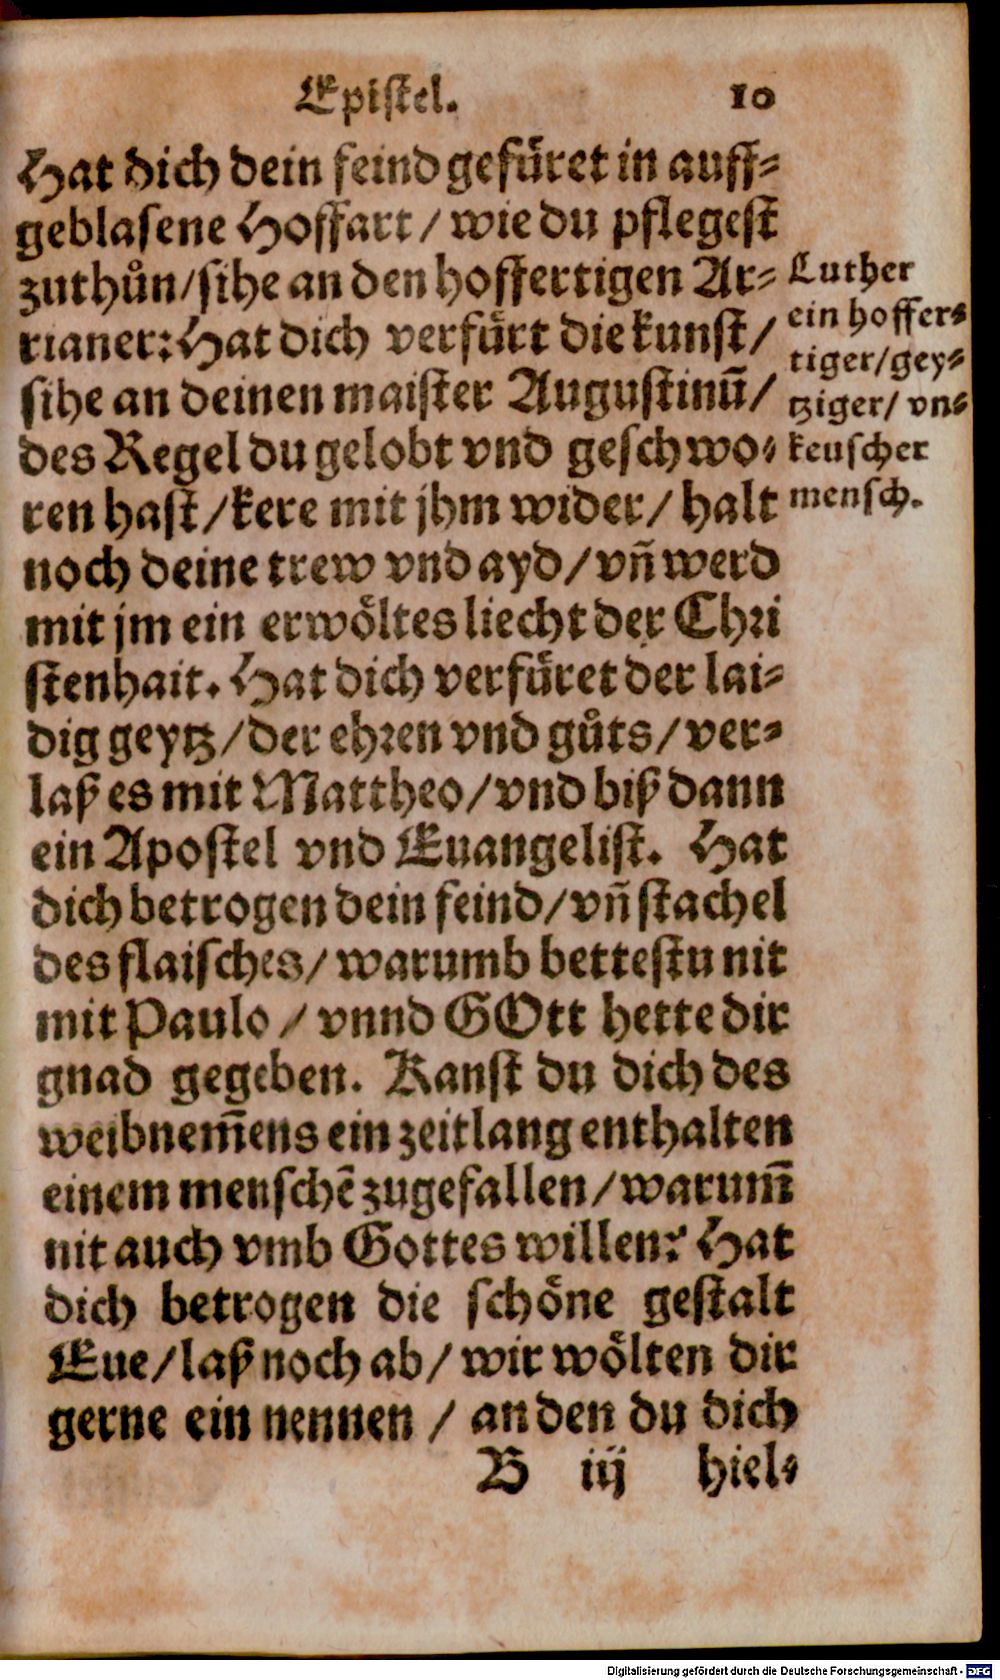 Epistel. 10
Hat dich dein feind gefüret in auff⸗
geblasene Hoffart / wie du pflegest
zuthůn / sihe an den hoffertigen Ar⸗
rianer: Hat dich verfürt die kunst /
sihe an deinen maister Augustinū /
des Regel du gelobt vnd geschwo⸗
ren hast / kere mit jhm wider / halt
noch deine trew vnd ayd / vn̄ werd
mit jm ein erwöltes liecht der Chri
stenhait. Hat dich verfüret der lai⸗
dig geytz / der ehren vnd gůts / ver⸗
laß es mit Mattheo / vnd biß dann
ein Apostel vnd Euangelist. Hat
dich betrogen dein feind / vn̄ stachel
des flaisches / warumb bettestu nit
mit Paulo / vnnd GOtt hette dir
gnad gegeben. Kanst du dich des
weibnem̄ens ein zeitlang enthalten
einem menschē zugefallen / warum̄
nit auch vmb Gottes willen? Hat
dich betrogen die schöne gestalt
Eue / laß noch ab / wir wölten dir
gerne ein nennen / an den du dich
B iij hiel⸗
Luther
ein hoffer⸗
tiger / gey⸗
tziger / vn⸗
keuscher
mensch.
Digitalisierung gefördert durch die Deutsche Forschungsgemeinschaft - DFG